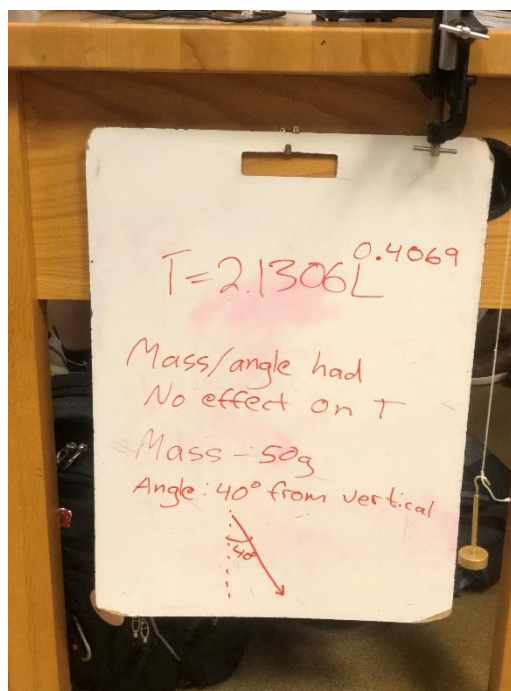 T=2.1306L^0.4069
Mass/angle had
No effect on T
Mass - 50g
Angle: 40° from vertical
40°